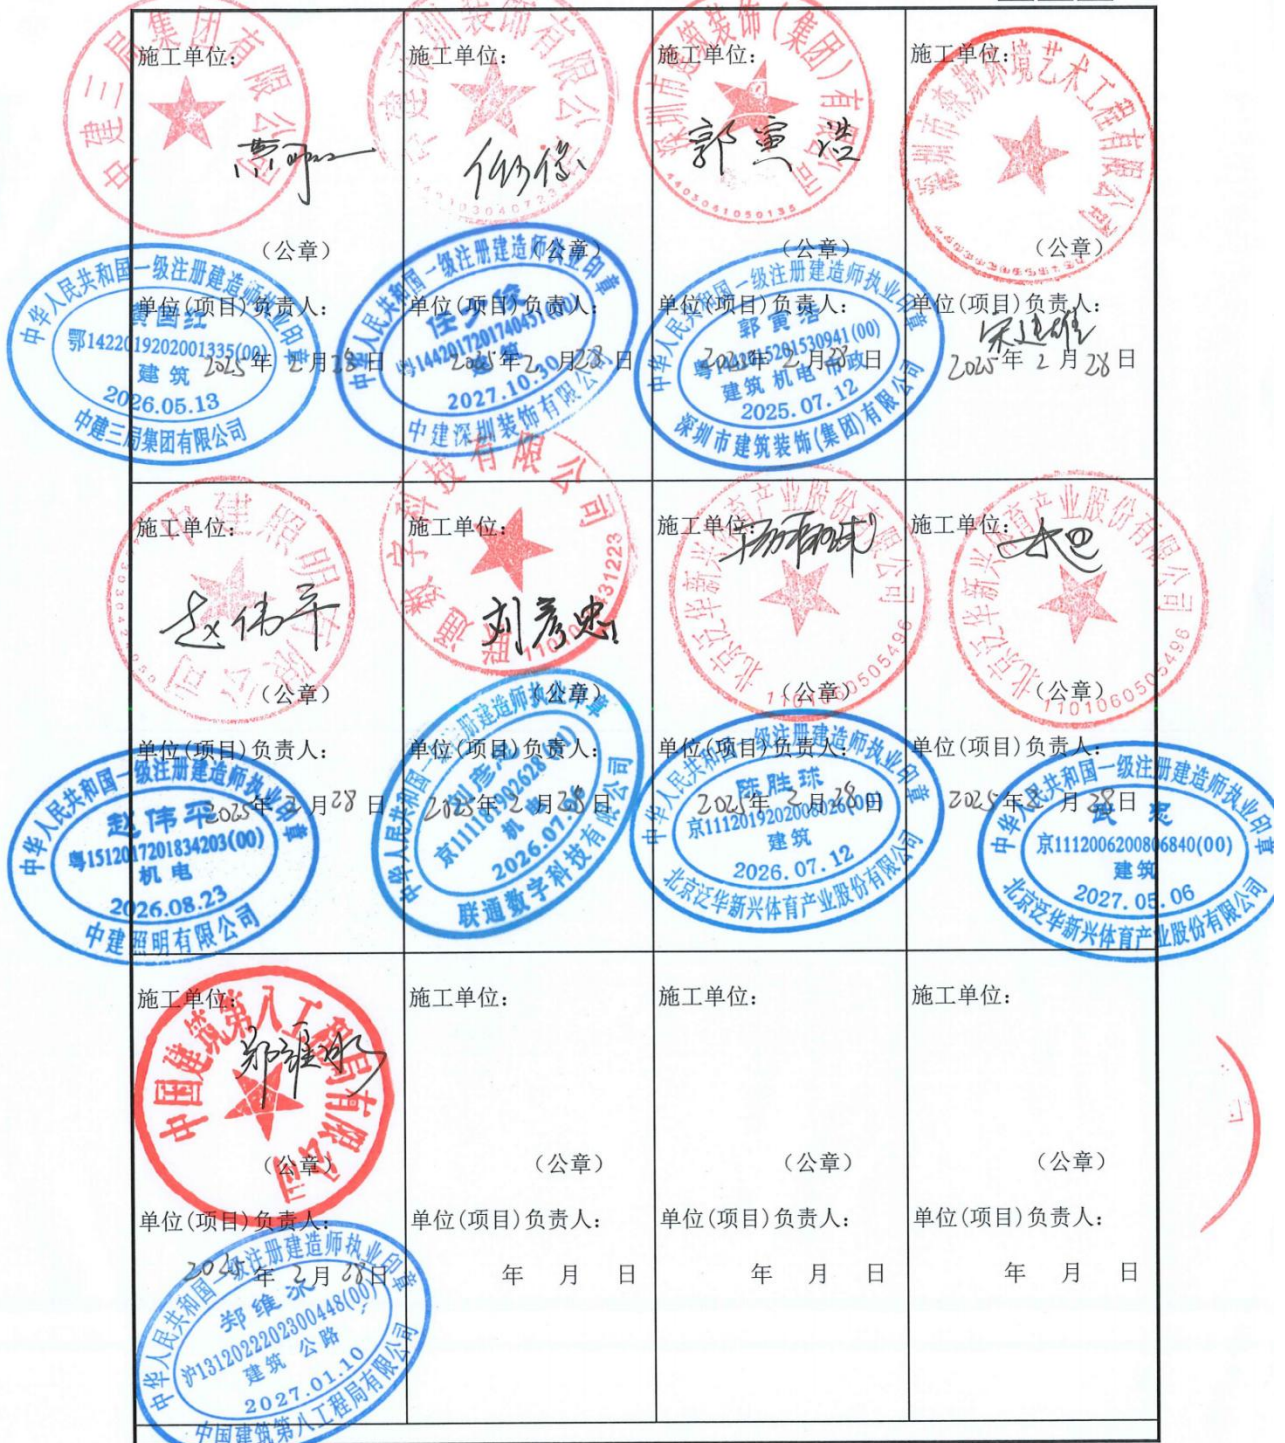 施工单位：
中建三局集团有限公司
（公章）
单位(项目)负责人：
2025年2月28日
中华人民共和国一级注册建造师执业印章
鄂1422019202001335(00)
建筑
2026.05.13
中建三局集团有限公司
施工单位：
中建深圳装饰有限公司
（公章）
单位(项目)负责人：
2025年2月28日
中华人民共和国一级注册建造师执业印章
粤1442017201740451(00)
建筑
2027.10.30
中建深圳装饰有限公司
施工单位：
深圳市建筑装饰（集团）有限公司
4403041050135
郭寅浩
（公章）
单位(项目)负责人：
2025年2月28日
中华人民共和国一级注册建造师执业印章
郭寅浩
建筑 机电 市政
2025.07.12
深圳市建筑装饰(集团)有限公司
施工单位：
环境艺术工程有限公司
（公章）
单位(项目)负责人：
2025年2月28日
施工单位：
中建照明有限公司
赵伟平
（公章）
单位(项目)负责人：
2025年2月28日
中华人民共和国一级注册建造师执业印章
赵伟平
粤1512017201834203(00)
机电
2026.08.23
中建照明有限公司
施工单位：
联通数字科技有限公司
刘彦忠
（公章）
单位(项目)负责人：
2025年2月28日
联通数字科技有限公司
施工单位：
北京泛华新兴体育产业股份有限公司
1101060505496
（公章）
单位(项目)负责人：
2025年2月28日
中华人民共和国一级注册建造师执业印章
陈胜球
建筑
2026.07.12
北京泛华新兴体育产业股份有限公司
施工单位：
北京泛华新兴体育产业股份有限公司
1101060505496
（公章）
单位(项目)负责人：
2025年2月28日
中华人民共和国一级注册建造师执业印章
京1112006200806840(00)
建筑
2027.05.06
北京泛华新兴体育产业股份有限公司
施工单位：
中国建筑第八工程局有限公司
郑维冰
（公章）
单位(项目)负责人：
2025年2月28日
中华人民共和国一级注册建造师执业印章
郑维冰
沪1312022202300448(00)
建筑 公路
2027.01.10
中国建筑第八工程局有限公司
施工单位：
（公章）
单位(项目)负责人：
年 月 日
施工单位：
（公章）
单位(项目)负责人：
年 月 日
施工单位：
（公章）
单位(项目)负责人：
年 月 日